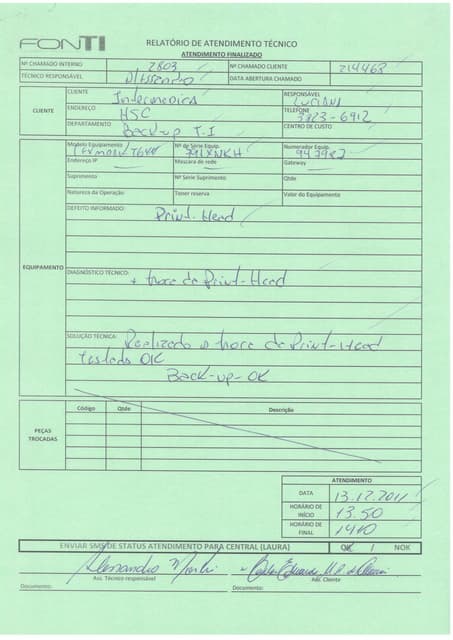 FONTI
RELATÓRIO DE ATENDIMENTO TÉCNICO
ATENDIMENTO FINALIZADO
Nº CHAMADO INTERNO 2803 Nº CHAMADO CLIENTE 214468
TÉCNICO RESPONSÁVEL Alessandro DATA ABERTURA CHAMADO
CLIENTE
CLIENTE Intermedica RESPONSÁVEL Luciana
ENDEREÇO HSC TELEFONE 3823-6912
DEPARTAMENTO Back-up T-I CENTRO DE CUSTO
EQUIPAMENTO
Modelo Equipamento Lexmark T644 Nº de Série Equip. 79LXNKH Numerador Equip. 947982
Endereço IP Mascara de rede Gateway
Suprimento Nº Série Suprimento Qtde
Natureza da Operação Toner reserva Valor do Equipamento
DEFEITO INFORMADO: Print-Head
DIAGNÓSTICO TÉCNICO: + troca de Print-Head
SOLUÇÃO TÉCNICA: Realizado a troca de Print-Head
Testado OK
Back-up-OK
PEÇAS TROCADAS
Código Qtde Descrição
ATENDIMENTO
DATA 13.12.2011
HORÁRIO DE INÍCIO 13.50
HORÁRIO DE FINAL 1410
ENVIAR SMS DE STATUS ATENDIMENTO PARA CENTRAL (LAURA) OK / NOK
Ass. Técnico responsável Ass. Cliente
Documento: Documento: